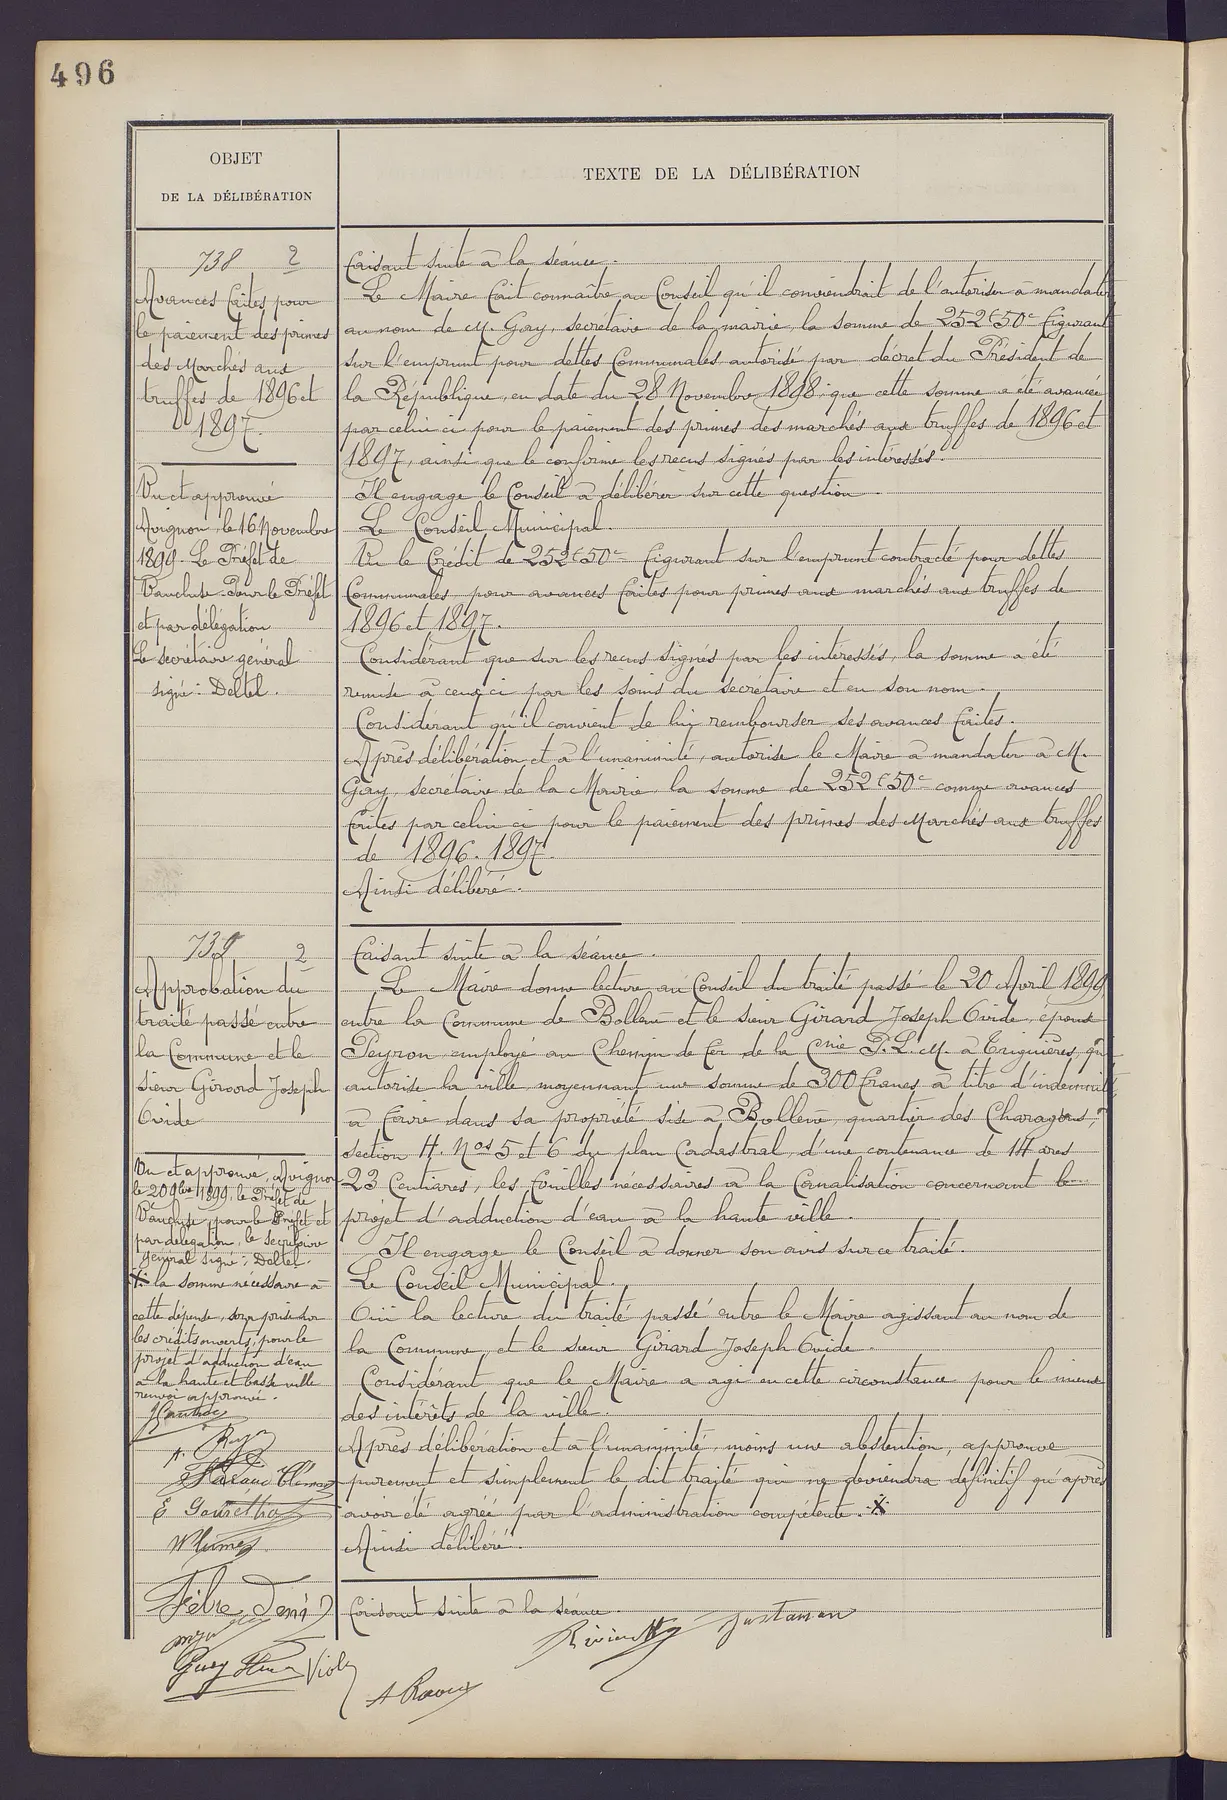 496
OBJET
DE LA DÉLIBÉRATION
TEXTE DE LA DÉLIBÉRATION
738 2
Avances faites pour
le paiement des primes
des Marchés aux
truffes de 1896 et
1897.
Vu et approuvé
Avignon, le 16 Novembre
1899. Le Préfet de
Vaucluse. Pour le Préfet
et par délégation
Le secrétaire général
signé : Deltel.
Faisant suite à la séance.
Le Maire fait connaître au Conseil qu'il conviendrait de l'autoriser à mandater
au nom de M. Gay, secrétaire de la mairie, la somme de 252f50c figurant
sur l'emprunt pour dettes Communales autorisé par décret du Président de
la République, en date du 28 Novembre 1898; que cette somme a été avancée
par celui ci pour le paiement des primes des marchés aux truffes de 1896 et
1897, ainsi que le confirme les reçus signés par les intéressés.
Il engage le Conseil à délibérer sur cette question.
Le Conseil Municipal.
Vu le Crédit de 252f50c figurant sur l'emprunt contracté pour dettes
Communales, pour avances faites pour primes aux marchés aux truffes de
1896 et 1897.
Considérant que sur les reçus signés par les intéressés, la somme a été
remise à ceux ci par les soins du secrétaire et en son nom.
Considérant qu'il convient de lui rembourser ses avances faites.
Après délibération et à l'unanimité, autorise le Maire à mandater à M.
Gay, secrétaire de la Mairie, la somme de 252f50c comme avances
faites par celui ci pour le paiement des primes des Marchés aux truffes
de 1896. 1897.
Ainsi délibéré.
739 2
Approbation du
traité passé entre
la Commune et le
sieur Girard Joseph
Ovide
Vu et approuvé, Avignon
le 20 9bre 1899, le Préfet de
Vaucluse, pour le Préfet et
par délégation, le secrétaire
général signé : Deltel.
X la somme nécessaire à
cette dépense, sera prise sur
les crédits ouverts, pour le
projet d'adduction d'eau
à la haute et basse ville
renvoi approuvé.
Faisant suite à la séance.
Le Maire donne lecture au Conseil du traité passé le 20 Avril 1899,
entre la Commune de Bollène et le sieur Girard Joseph Ovide, époux
Peyron, employé au Chemin de fer de la Cnie P.L.M. à Eyguières, qui
autorise la ville, moyennant une somme de 300 francs à titre d'indemnité,
à faire dans sa propriété sise à Bollène, quartier des
section H. Nos 5 et 6 du plan Cadastral, d'une contenance de 14 ares
23 Centiares, les fouilles nécessaires à la Canalisation concernant le
projet d'adduction d'eau à la haute ville.
Il engage le Conseil à donner son avis sur ce traité.
Le Conseil Municipal.
Ouï la lecture du traité passé entre le Maire agissant au nom de
la Commune, et le sieur Girard Joseph Ovide.
Considérant que le Maire a agi en cette circonstance pour le mieux
des intérêts de la ville.
Après délibération et à l'unanimité, moins une abstention, approuve
purement et simplement le dit traité qui ne deviendra définitif qu'après
avoir été agréé par l'administration compétente. X
Ainsi délibéré.
Faisant suite à la séance.
Fèbre Denis
Justaman
A Raoux